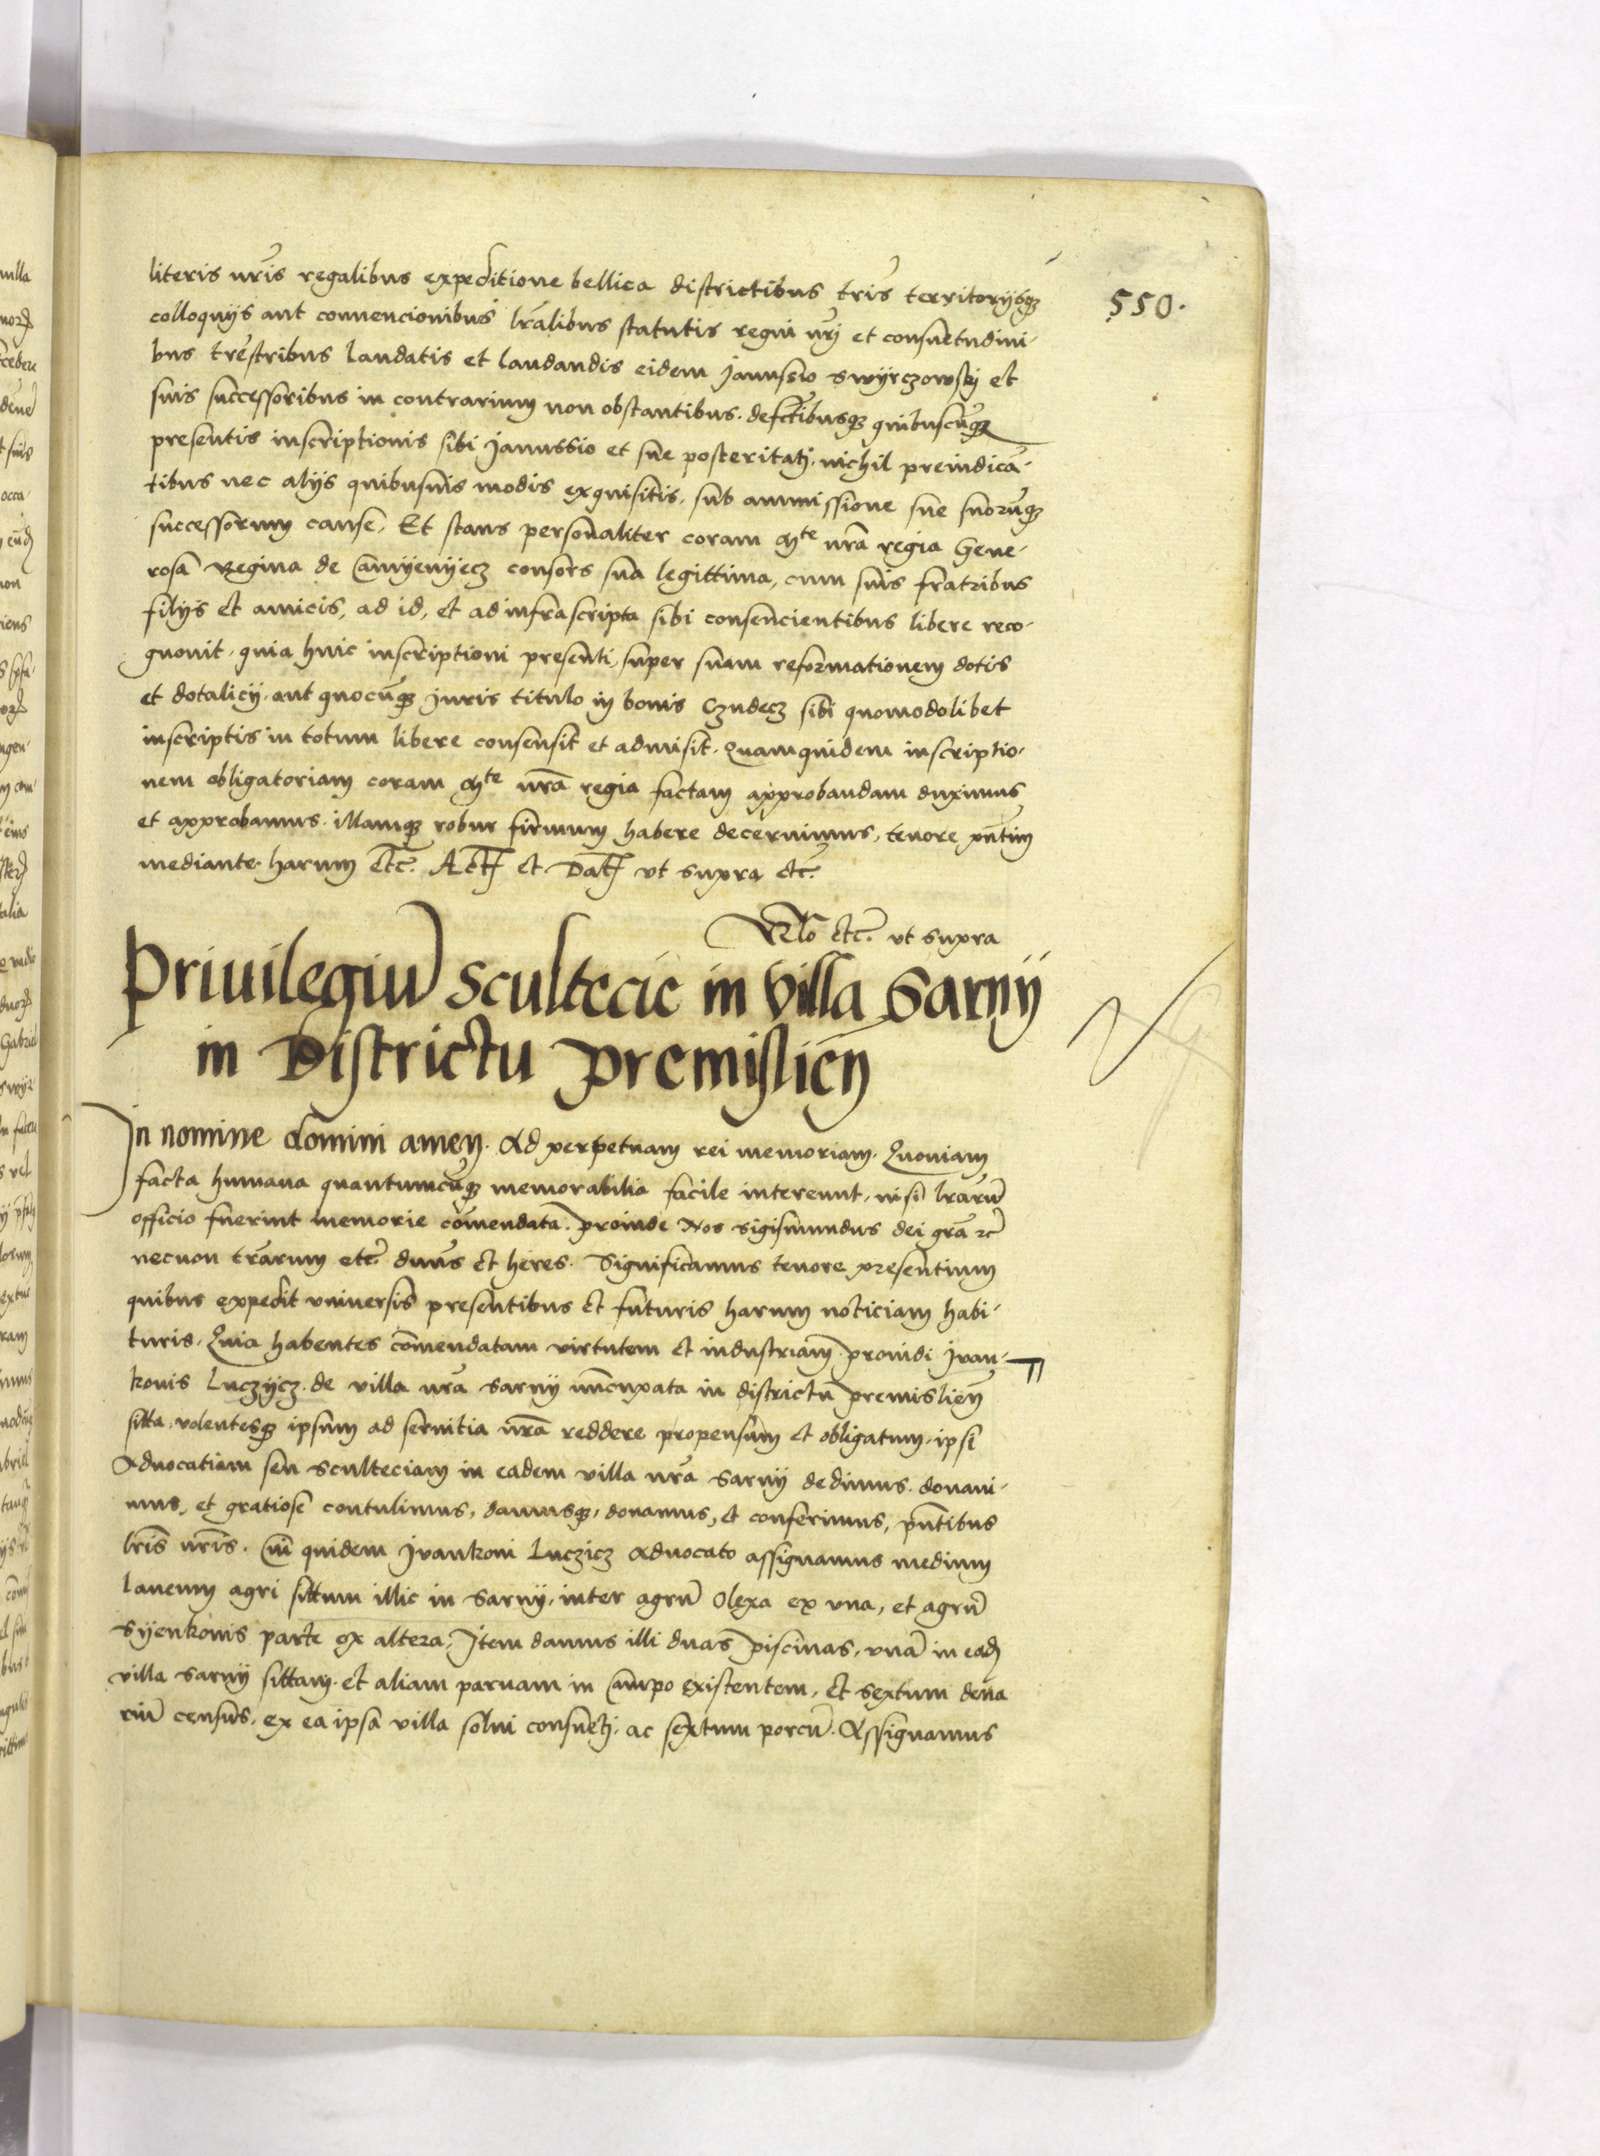 literis nr̃is regalibus expeditione bellica districtibus tr̃is territorijsq
550.
colloquijs aut convencionibus lr̃alibus statutis regni nr̃j et consuetudini-
bus tr̃estribus laudatis et laudandis eidem Janussio Swyrczowskj et
suis successoribus in contrarium non obstantibus. defectibusq quibuscũq
presentis inscriptionis sibi Janussio et sue posteritatj. nichil preiudicã-
tibus nec alijs quibusuis modis exquisitis. sub ammissione sue suorũq
successorum cause. Et stans personaliter coram Mte nr̃a regia Gene-
rosa Regina de Camyenyecz consors sua legittima, cum suis fratribus
filijs et amicis, ad id, et ad infrascripta sibi consencientibus libere reco-
gnouit. quia huic inscriptioni presenti, super suam reformationem dotis
et dotalicij. aut quocũq juris titulo in bonis Czudecz sibi quomodolibet
inscriptis in totum libere consensit et admisit. Quamquidem inscriptio-
nem obligatoriam coram Mte nr̃a regia factam approbandam duximus
et approbamus. illamq robur firmum habere decernimus, tenore pñtim
mediante. harum etc̃. Act̃ et Dat̃ ut supra etc̃.
Rlo etc̃. ut supra
Priuilegiũ Scultecie in villa Sarny
in Districtu Premislieñ
In nomine domini amen. Ad perpetuam rei memoriam. Quoniam
facta humana quantumcũq memorabilia facile intereunt, nisi lr̃arũ
officio fuerint memorie com̃endata. proinde Nos Sigismundus dei grã etc̃
necnon tr̃arum etc̃ duñs et heres. Significamus tenore presentium
quibus expedit vniuersis presentibus et futuris harum noticiam habi-
turis. Quia habentes com̃endatam virtutem et industriam prouidi Iuan-
konis Luczycz. de villa nr̃a Sarny nuncupata in districtu premislieñ
sitta. volentesq ipsum ad seruitia nr̃a reddere propensum et obligatum. ipsi
Aduocatiam seu Sculteciam in eadem villa nr̃a Sarny dedimus. donaui-
mus, et gratiose contulimus, damusq, donamus, et conferimus, pñtibus
lr̃is nr̃is. Cui quidem Iuankoni Luczicz Aduocato assignamus medium
laneum agri sittum illic in Sarny, inter agrũ Olexa ex vna, et agrũ
Syenkonis parte ex altera, Item damus illi duas piscinas, vnã in eadẽ
villa Sarny sittam. et aliam paruam in campo existentem, et sextum dena
riũ census. ex ea ipsa villa solui consuetj. ac sextum porcũ. Assignamus